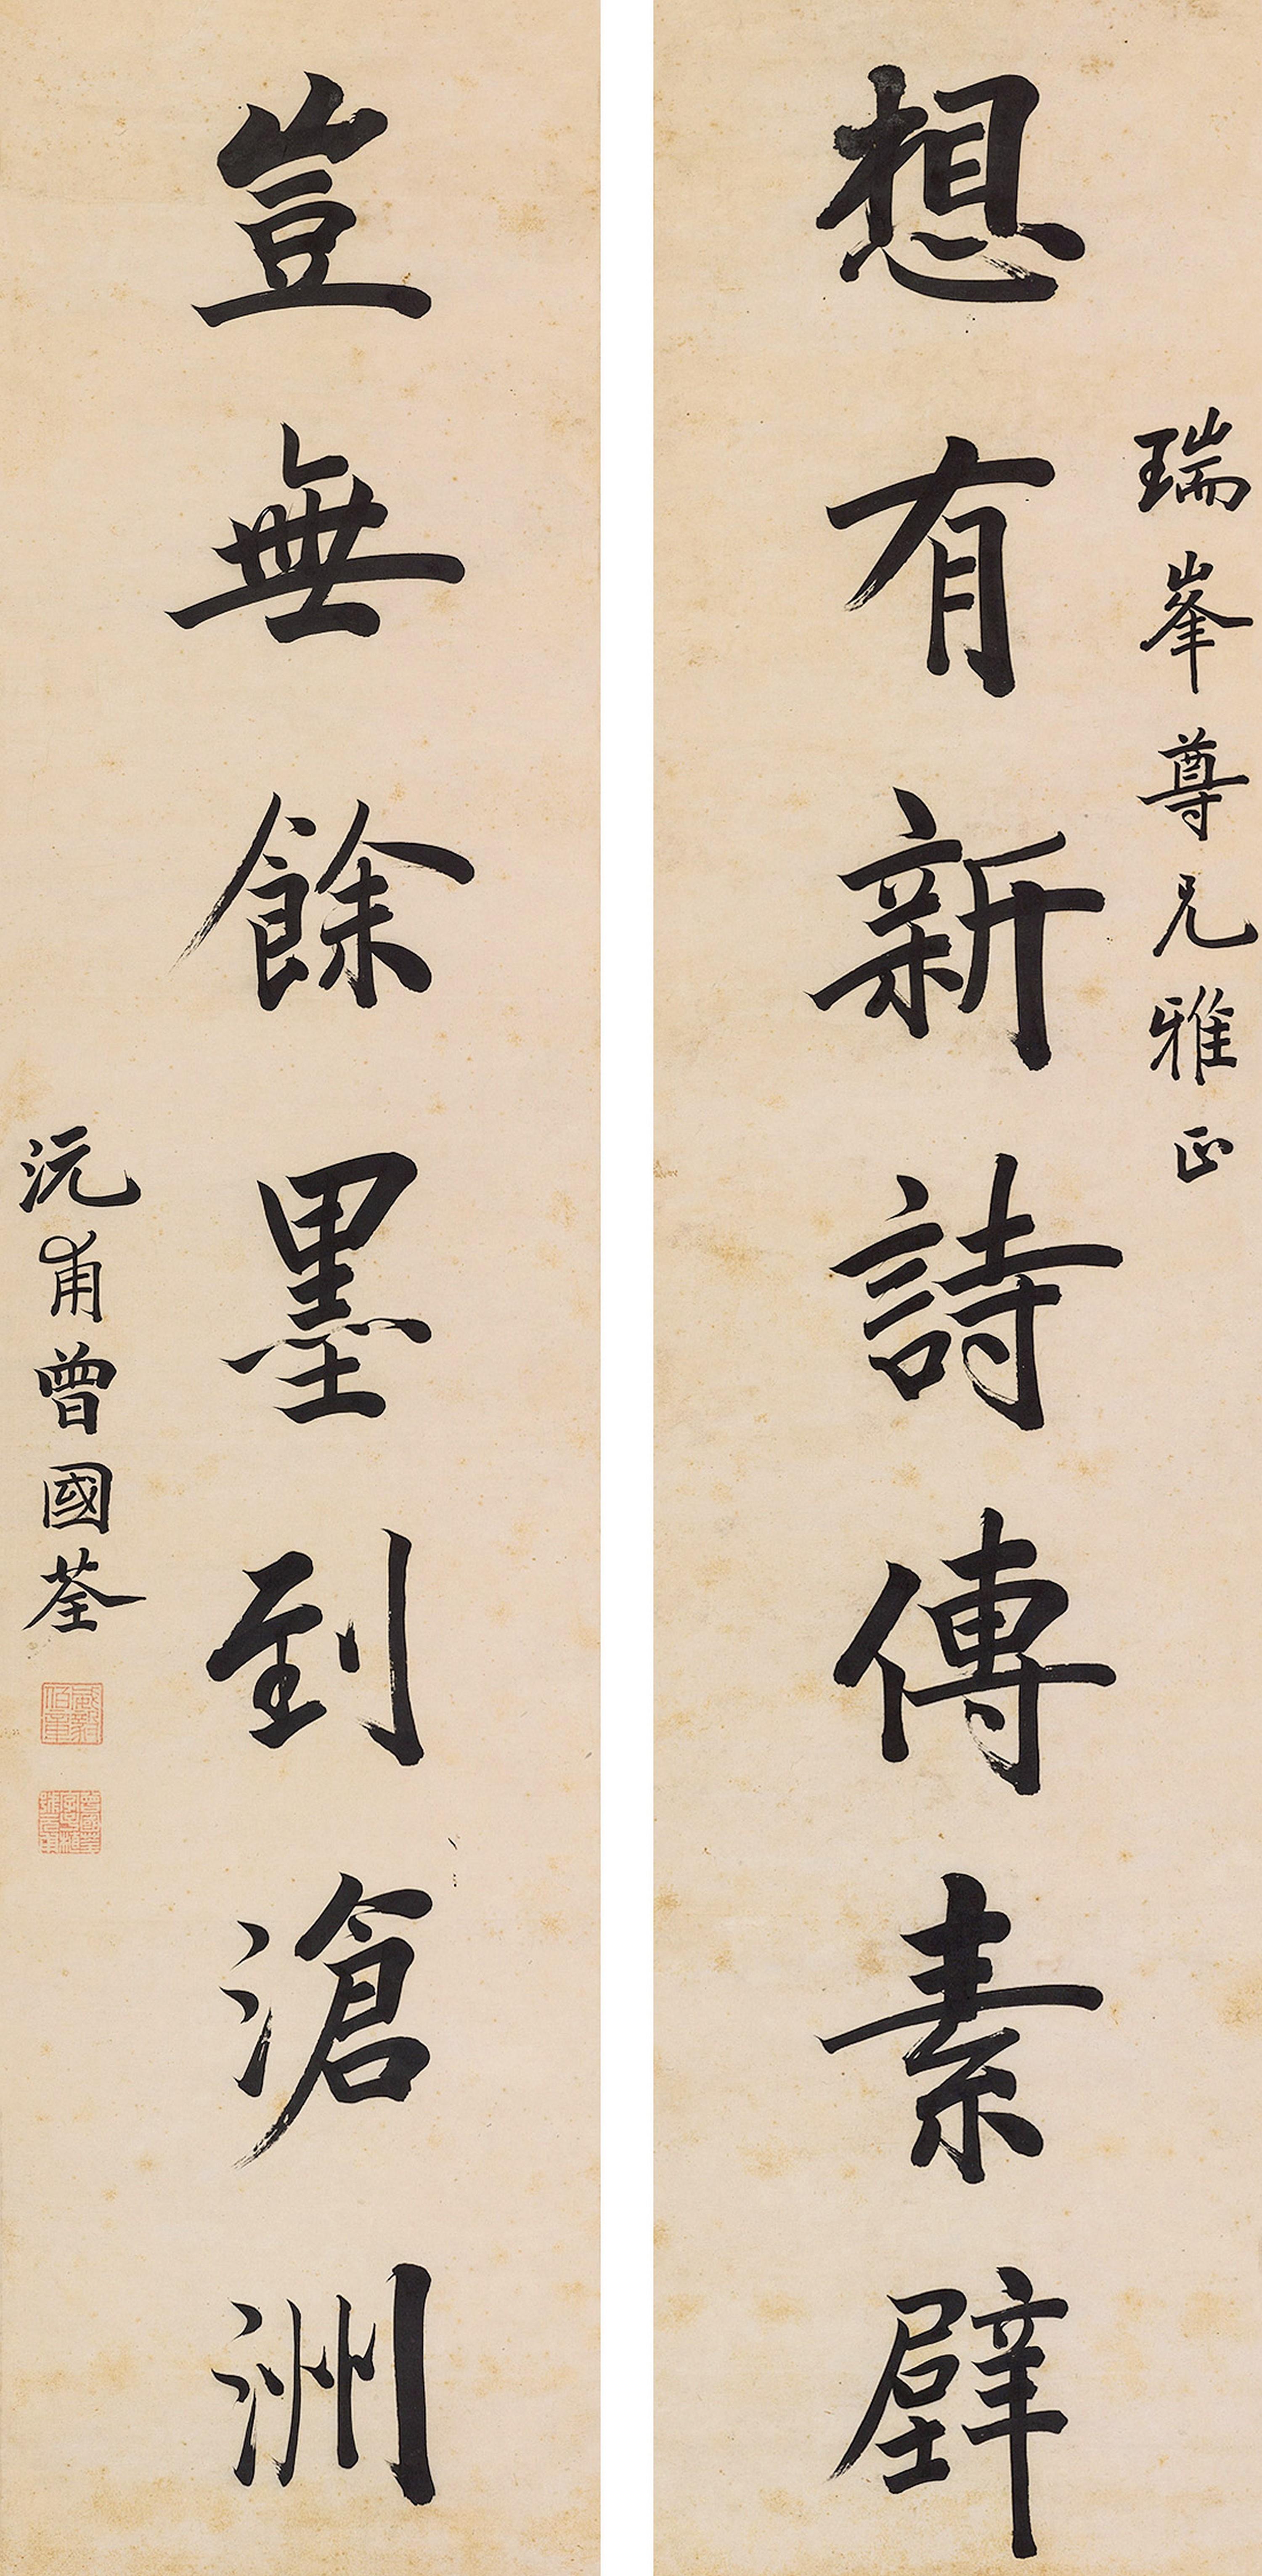 瑞峯尊兄雅正
想有新詩傳素壁
豈無餘墨到滄洲
沅甫曾國荃
威毅伯章